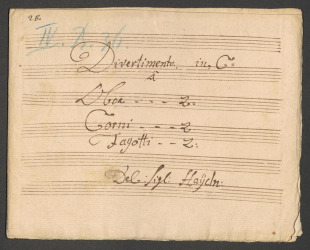 IV. A. 36.
Divertimento in C
à
Oboe - - - 2.
Corni - - - 2
Fagotti - - 2.
Del: Sigl: Haÿdn.